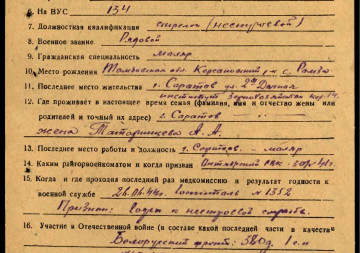 6. На ВУС 134
7. Должностная квалификация стрелок (нестроевой)
8. Военное звание Рядовой
9. Гражданская специальность маляр
10. Место рождения Тамбовская обл Кирсановский р-н с. Рамза
11. Последнее место жительства г. Саратов ул. 2ая Дачная
институт
12. Где проживает в настоящее время семья (фамилия, имя и отчество жены или
родителей и точный их адрес) г. Саратов
жена Татаринцева А. А.
13. Последнее место работы и должность г. Саратов. маляр
14. Каким райгорвоенкоматом и когда призван Октябрский
15. Когда и где проходил последний раз медкомиссию и результат годности к
военной службе 26.04.44г. Госпиталь № 1352
Признан: годен к нестроевой службе.
16. Участие в Отечественной войне (в составе какой последней части в качестве
Белорусский фронт: 380д.